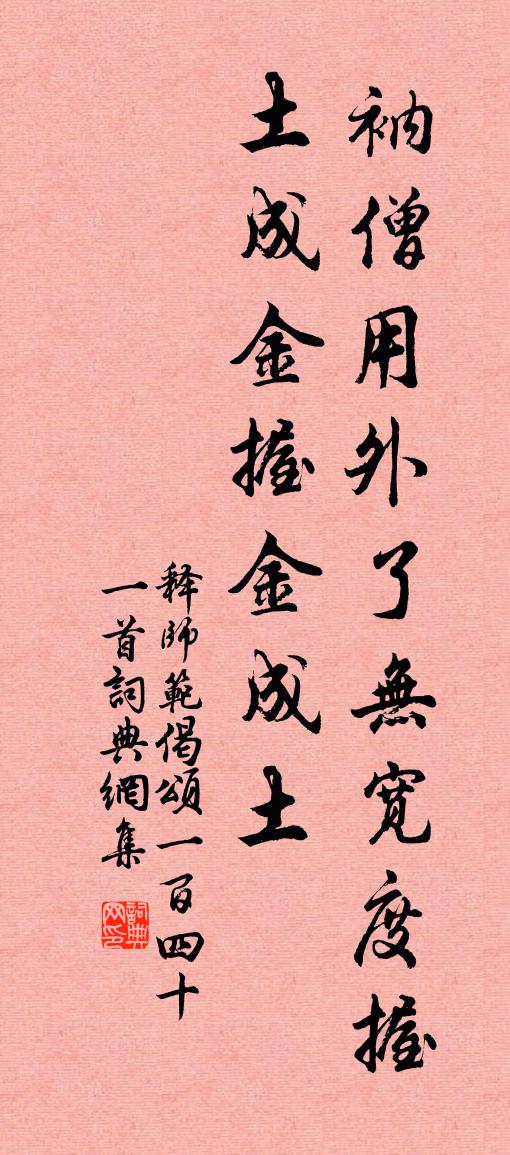 衲僧用外了無寬度握
土成金握金成土
释師範偈頌一百四十
一首詞典網集
詞典网印